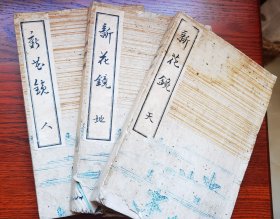 新花鏡 天
新花鏡 地
新花鏡 人